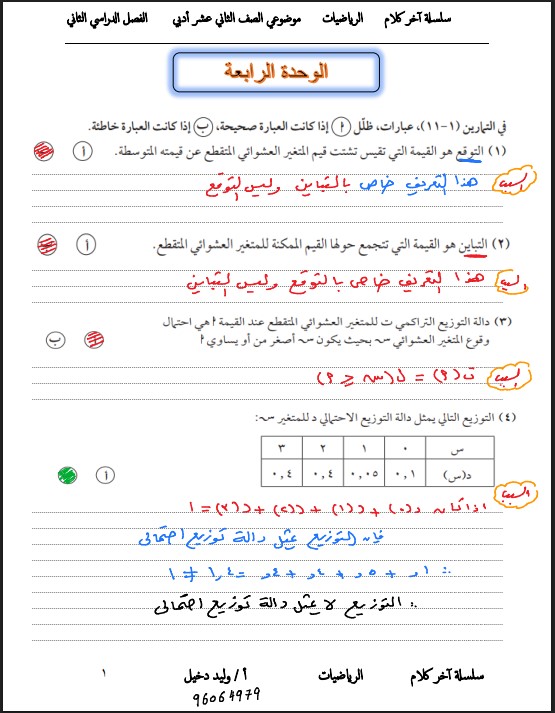 سلسلة آخر كلام الرياضيات موضوعي الصف الثاني عشر أدبي الفصل الدراسي الثاني
الوحدة الرابعة
في التمارين (١-١١)، عبارات، ظلّل أ إذا كانت العبارة صحيحة، ب إذا كانت العبارة خاطئة.
(١) التوقع هو القيمة التي تقيس تشتت قيم المتغير العشوائي المتقطع عن قيمته المتوسطة. أ
السبب هذا التعريف خاص بالتباين وليس التوقع
(٢) التباين هو القيمة التي تتجمع حولها القيم الممكنة للمتغير العشوائي المتقطع. أ
السبب هذا التعريف خاص بالتوقع وليس التباين
(٣) دالة التوزيع التراكمي ت للمتغير العشوائي المتقطع عند القيمة أ هي احتمال
وقوع المتغير العشوائي سـ بحيث يكون سـ أصغر من أو يساوي أ ب
السبب ت(٩) = ل(سـ ≥ ٩)
(٤) التوزيع التالي يمثل دالة التوزيع الاحتمالي د للمتغير سـ:
س ٠ ١ ٢ ٣
د(س) ٠,١ ٠,٠٥ ٠,٤ ٠,٤
أ
السبب اذا كان د(٠) + د(١) + د(٢) + د(٣) = ١
فإن التوزيع يمثل دالة توزيع احتمالي
∴ ٠,١ + ٠,٥ + ٠,٤ + ٠,٤ = ١,٤ ≠ ١
∴ التوزيع لا يمثل دالة توزيع احتمالي
سلسلة آخر كلام الرياضيات أ / وليد دخيل ١
96064979